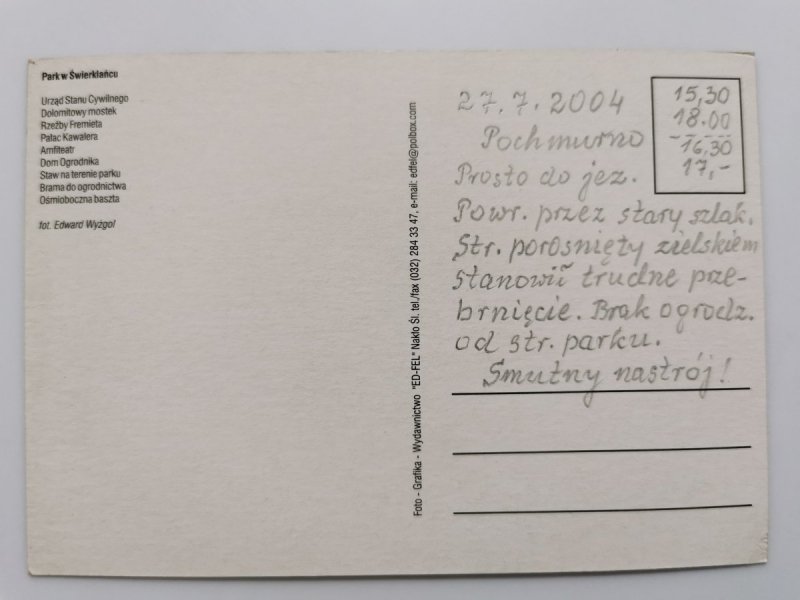 Park w Świerklańcu
Urząd Stanu Cywilnego
Dolomitowy mostek
Rzeźby Fremieta
Pałac Kawalera
Amfiteatr
Dom Ogrodnika
Staw na terenie parku
Brama do ogrodnictwa
Ośmioboczna baszta
fot. Edward Wyżgol
Foto - Grafika - Wydawnictwo "ED-FEL" Nakło Śl. tel./fax (032) 284 33 47, e-mail: edfel@polbox.com
15,30
18.00
16,30
17,-
27.7.2004
Pochmurno
Prosto do jez.
Powr. przez stary szlak.
Str. porośnięty zielskiem
stanowił trudne prze-
brnięcie. Brak ogrodz.
od str. parku.
Smutny nastrój!